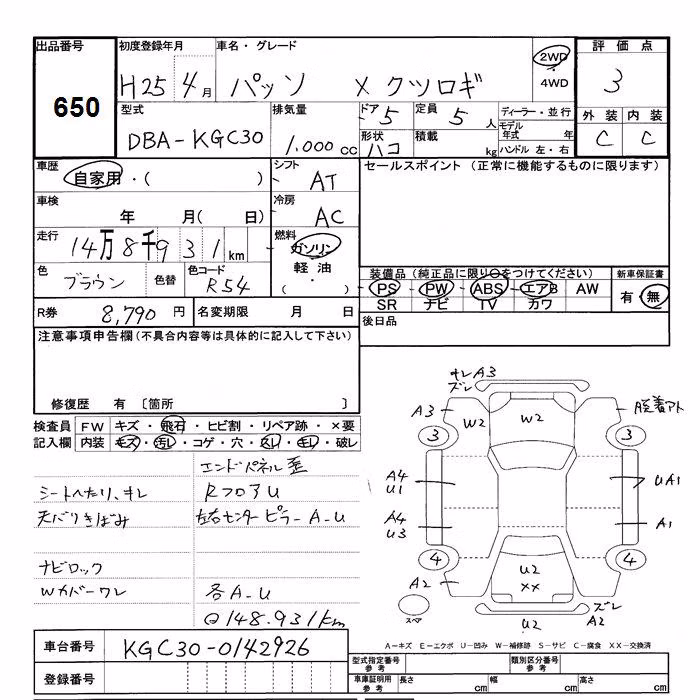 出品番号
初度登録年月
車名・グレード
評価点
650
H25年4月
パッソ X クツロギ
2WD
4WD
3
型式
排気量
ドア 5
定員 5 人
ディーラー・並行
モデル年式 年
ハンドル 左・右
外装 内装
DBA-KGC30
1.000 cc
形状 ハコ
積載 kg
C C
車歴
自家用・( )
シフト
AT
セールスポイント (正常に機能するものに限ります)
車検
年 月( 日)
冷房
AC
走行
14万8千931km
燃料
ガソリン
軽油
( ・ )
色
ブラウン
色替
色コード
R54
装備品 (純正品に限り○をつけてください)
PS PW ABS エアB AW
SR ナビ TV カワ
新車保証書
有・無
R券 8,790 円
名変期限 月 日
後日品
注意事項申告欄(不具合内容等は具体的に記入して下さい)
修復歴 有 〔箇所 〕
検査員記入欄
FW キズ・飛石・ヒビ割・リペア跡・×要
内装 キズ・汚レ・コゲ・穴・スレ・モレ・破レ
エンドパネル歪
シートへたり、キレ
RフロアU
天バリきばみ
左右センターピラーA-U
ナビロック
Wカバーワレ
各A-U
@148.931km
キレA3
ズレ
A3
W2
W2
脱着アト
3
3
A4
U1
UA1
A4
U3
A1
4
4
A2
U2
XX
スペア
U2
ズレ
A2
車台番号
KGC30-0142926
登録番号
A-キズ E-エクボ U-凹み W-補修跡 S-サビ C-腐食 XX-交換済
型式指定番号 参考
類別区分番号 参考
車庫証明用 参考
長さ cm
幅 cm
高さ cm